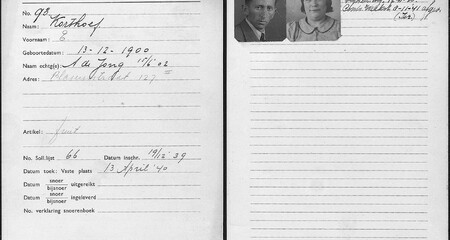 No. 93.
Naam: Korthoef
Voornaam: E
Geboortedatum: 13-12-1900
Naam echtg(e): A de Jong 17/6 02
Adres: 127 II
Artikel: fruit
No. Soll.lijst 66 Datum inschr. 19/12 39
Datum toek: Vaste plaats 13 April '40
Datum snoer bijsnoer uitgereikt
Datum snoer bijsnoer ingeleverd
No. verklaring snoerenboek